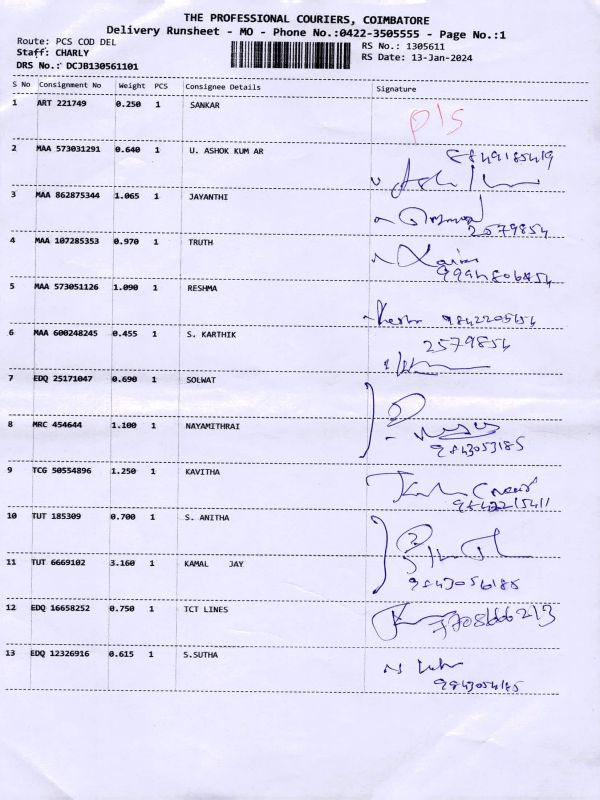 THE PROFESSIONAL COURIERS, COIMBATORE
Delivery Runsheet - MO - Phone No.:0422-3505555 - Page No.:1
Route: PCS COD DEL RS No.: 1305611
Staff: CHARLY RS Date: 13-Jan-2024
DRS No.: DCJB130561101
S No Consignment No Weight PCS Consignee Details Signature
1 ART 221749 0.250 1 SANKAR
P/S
2 MAA 573031291 0.640 1 U. ASHOK KUM AR
3 MAA 862875344 1.065 1 JAYANTHI
2579854
4 MAA 107285353 0.970 1 TRUTH
5 MAA 573051126 1.090 1 RESHMA
6 MAA 600248245 0.455 1 S. KARTHIK
2579854
7 EDQ 25171047 0.690 1 SOLWAT
8 MRC 454644 1.100 1 NAYAMITHRAI
9843053185
9 TCG 50554896 1.250 1 KAVITHA
10 TUT 185309 0.700 1 S. ANITHA
11 TUT 6669102 3.160 1 KAMAL JAY
9843056185
12 EDQ 16658252 0.750 1 TCT LINES
13 EDQ 12326916 0.615 1 S.SUTHA
9843054185